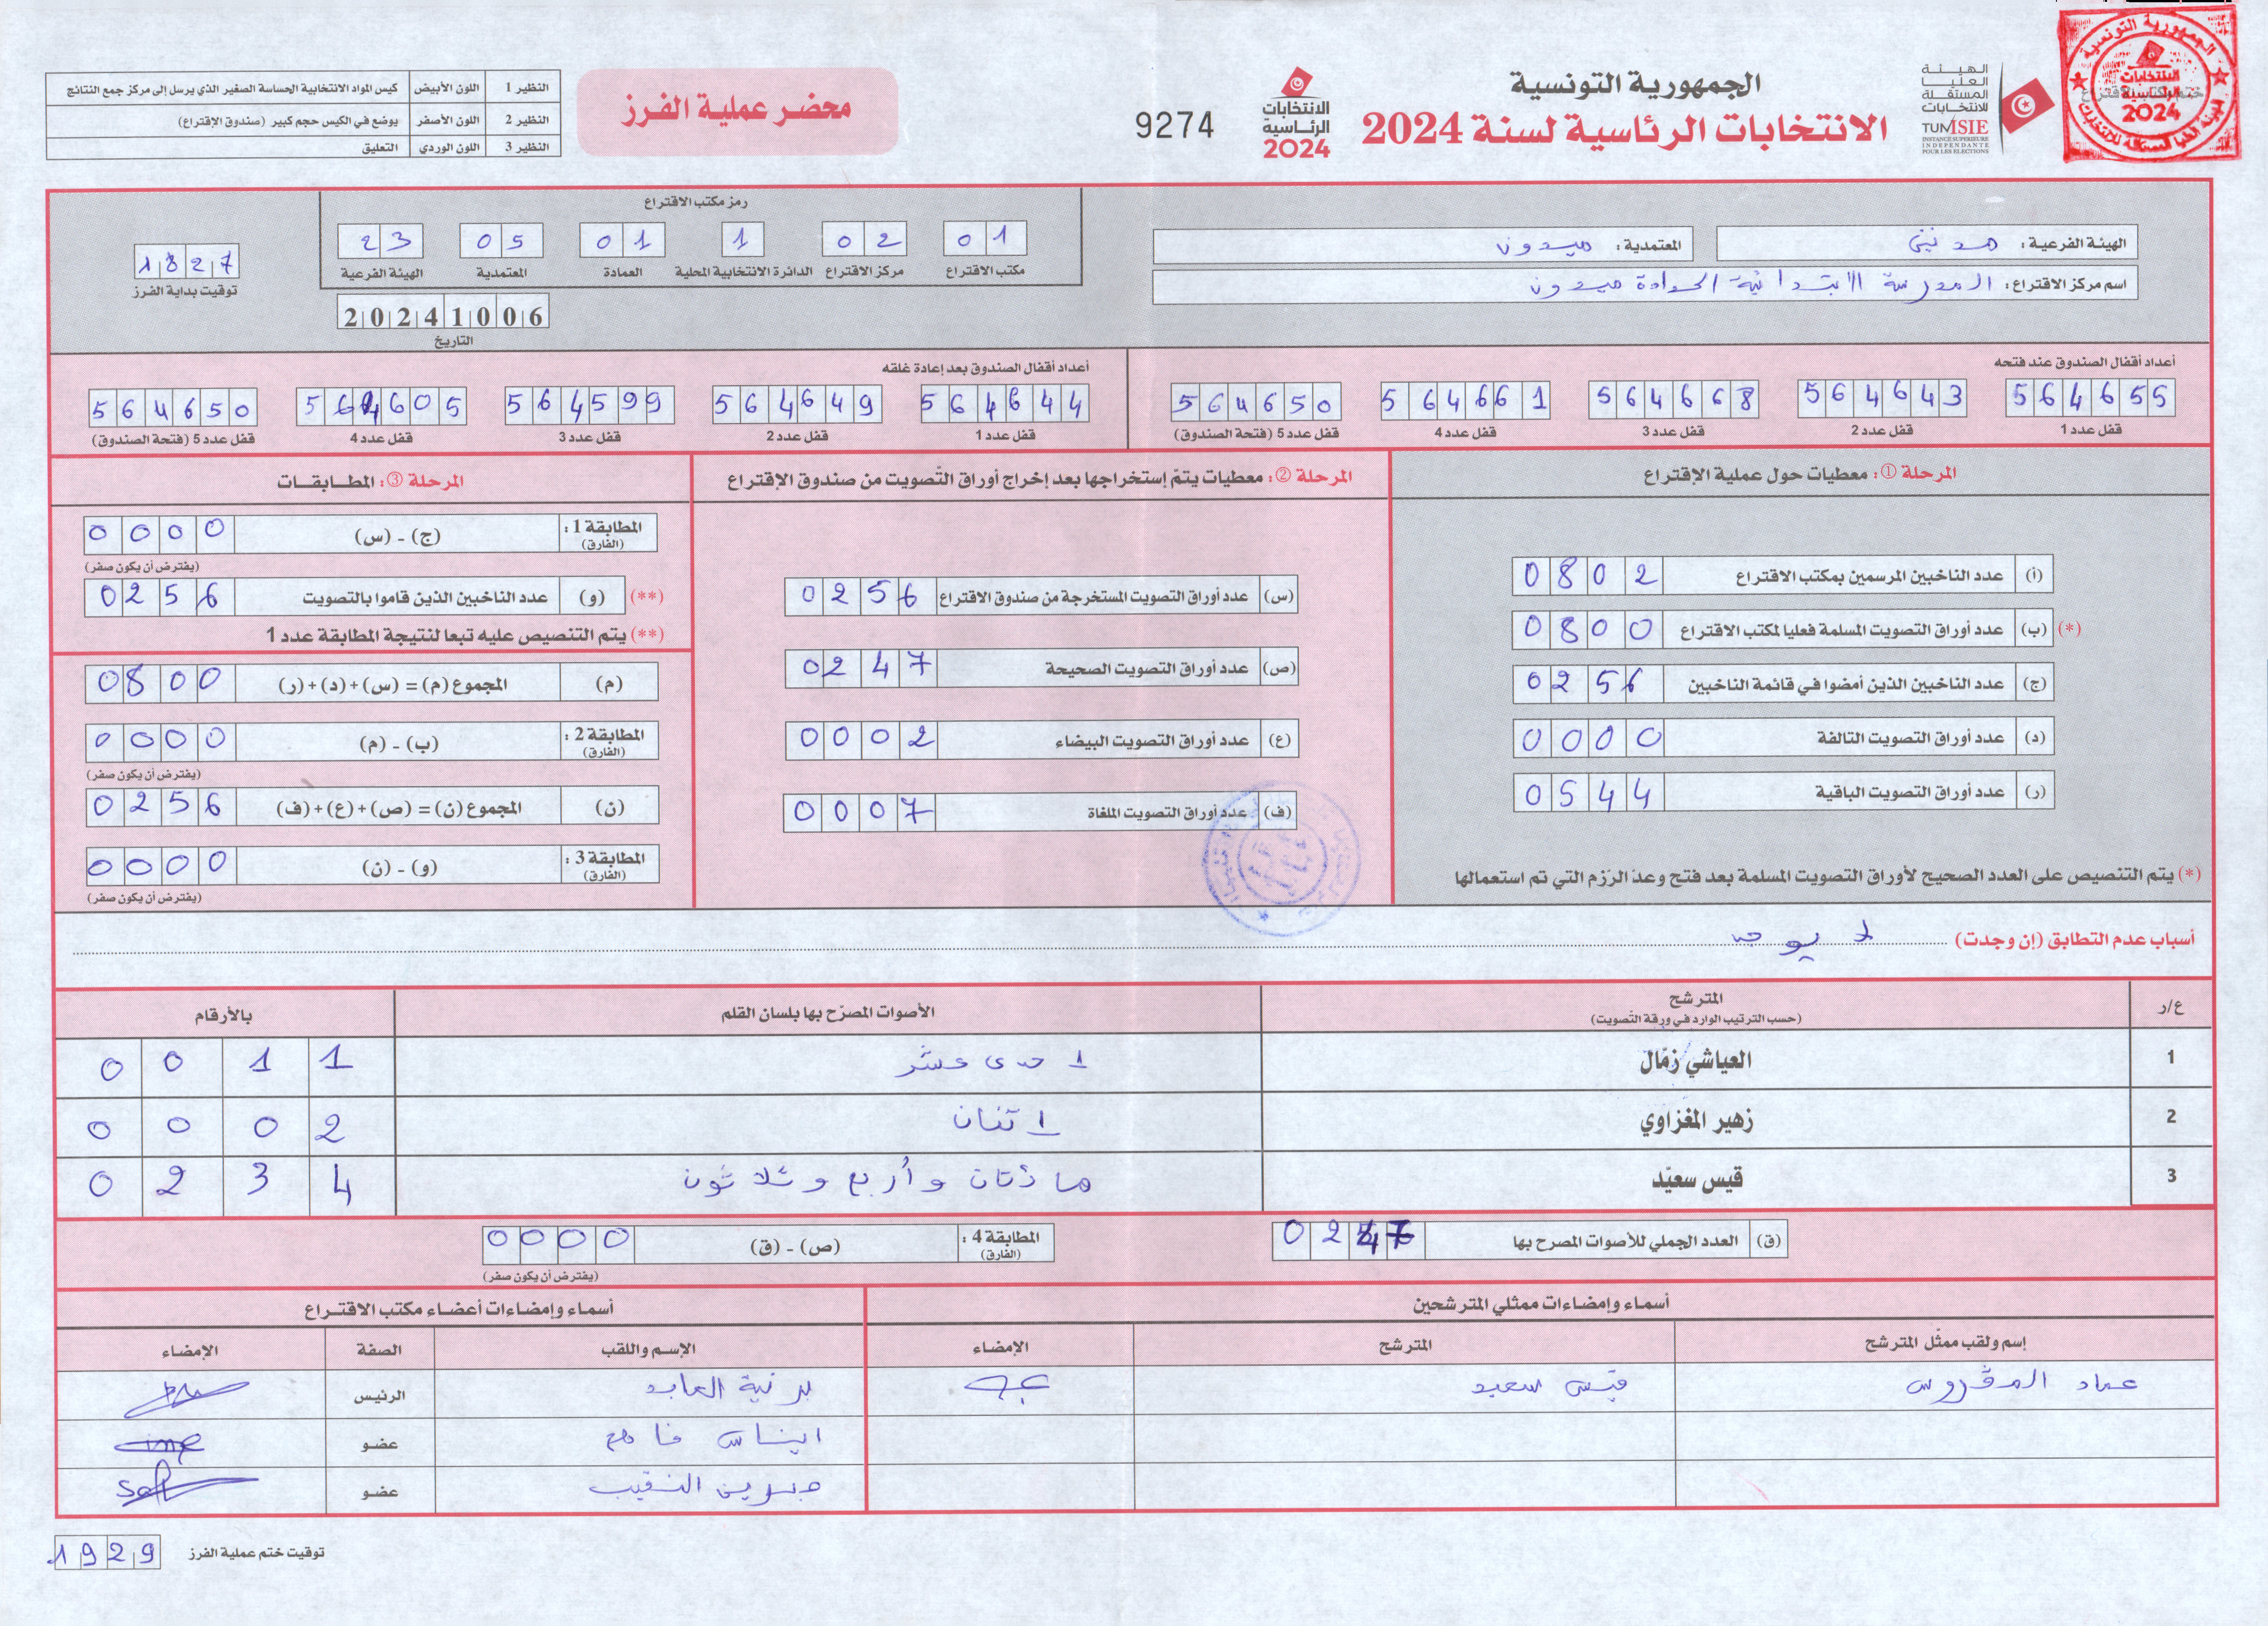 الجمهورية التونسية
الانتخابات الرئاسية لسنة 2024
الهيئة العليا المستقلة للانتخابات
TUNISIE
INSTANCE SUPERIEURE INDEPENDANTE POUR LES ELECTIONS
ختم مكتب الاقتراع
الجمهورية التونسية
الانتخابات الرئاسية 2024
الانتخابات الرئاسية 2024
9274
محضر عملية الفرز
النظير 1 اللون الأبيض كيس المواد الانتخابية الحساسة الصغير الذي يرسل إلى مركز جمع النتائج
النظير 2 اللون الأصفر يوضع في الكيس حجم كبير (صندوق الإقتراع)
النظير 3 اللون الوردي التعليق
الهيئة الفرعية: مدنين
المعتمدية: ميدون
اسم مركز الاقتراع: المدرسة الابتدائية الحدادة ميدون
رمز مكتب الاقتراع
01 02 1 01 05 23
مكتب الاقتراع مركز الاقتراع الدائرة الانتخابية المحلية العمادة المعتمدية الهيئة الفرعية
20241006
التاريخ
1827
توقيت بداية الفرز
أعداد أقفال الصندوق عند فتحه
564655 564643 564668 564661 564650
قفل عدد 1 قفل عدد 2 قفل عدد 3 قفل عدد 4 قفل عدد 5 (فتحة الصندوق)
أعداد أقفال الصندوق بعد إعادة غلقه
564644 564649 564599 564605 564650
قفل عدد 1 قفل عدد 2 قفل عدد 3 قفل عدد 4 قفل عدد 5 (فتحة الصندوق)
المرحلة ①: معطيات حول عملية الإقتراع
(أ) عدد الناخبين المرسمين بمكتب الاقتراع 0802
(*) (ب) عدد أوراق التصويت المسلمة فعليا لمكتب الاقتراع 0800
(ج) عدد الناخبين الذين أمضوا في قائمة الناخبين 0256
(د) عدد أوراق التصويت التالفة 0000
(ر) عدد أوراق التصويت الباقية 0544
(*) يتم التنصيص على العدد الصحيح لأوراق التصويت المسلمة بعد فتح وعدّ الرّزم التي تم استعمالها
المرحلة ②: معطيات يتمّ إستخراجها بعد إخراج أوراق التّصويت من صندوق الإقتراع
(س) عدد أوراق التصويت المستخرجة من صندوق الاقتراع 0256
(ص) عدد أوراق التصويت الصحيحة 0247
(ع) عدد أوراق التصويت البيضاء 0002
(ف) عدد أوراق التصويت الملغاة 0007
المرحلة ③: المطابقات
المطابقة 1: (الفارق) (ج) - (س) 0000
(يفترض أن يكون صفر)
(**) (و) عدد الناخبين الذين قاموا بالتصويت 0256
(**) يتم التنصيص عليه تبعا لنتيجة المطابقة عدد 1
(م) المجموع (م) = (س) + (د) + (ر) 0800
المطابقة 2: (الفارق) (ب) - (م) 0000
(يفترض أن يكون صفر)
(ن) المجموع (ن) = (ص) + (ع) + (ف) 0256
المطابقة 3: (الفارق) (و) - (ن) 0000
(يفترض أن يكون صفر)
أسباب عدم التطابق (إن وجدت) لا يوجد
ع/ر المترشح (حسب الترتيب الوارد في ورقة التّصويت) الأصوات المصرّح بها بلسان القلم بالأرقام
1 العياشي زمّال احدى عشر 0011
2 زهير المغزاوي اتنان 0002
3 قيس سعيّد مائتان وأربع وثلاثون 0234
(ق) العدد الجملي للأصوات المصرح بها 0247
المطابقة 4: (الفارق) (ص) - (ق) 0000
(يفترض أن يكون صفر)
أسماء وإمضاءات ممثلي المترشحين
إسم ولقب ممثّل المترشح المترشح الإمضاء
عماد قيس سعيد
أسماء وإمضاءات أعضاء مكتب الاقتراع
الإسم واللقب الصفة الإمضاء
العابد الرئيس
ايناس عضو
النقيب عضو
توقيت ختم عملية الفرز 1929